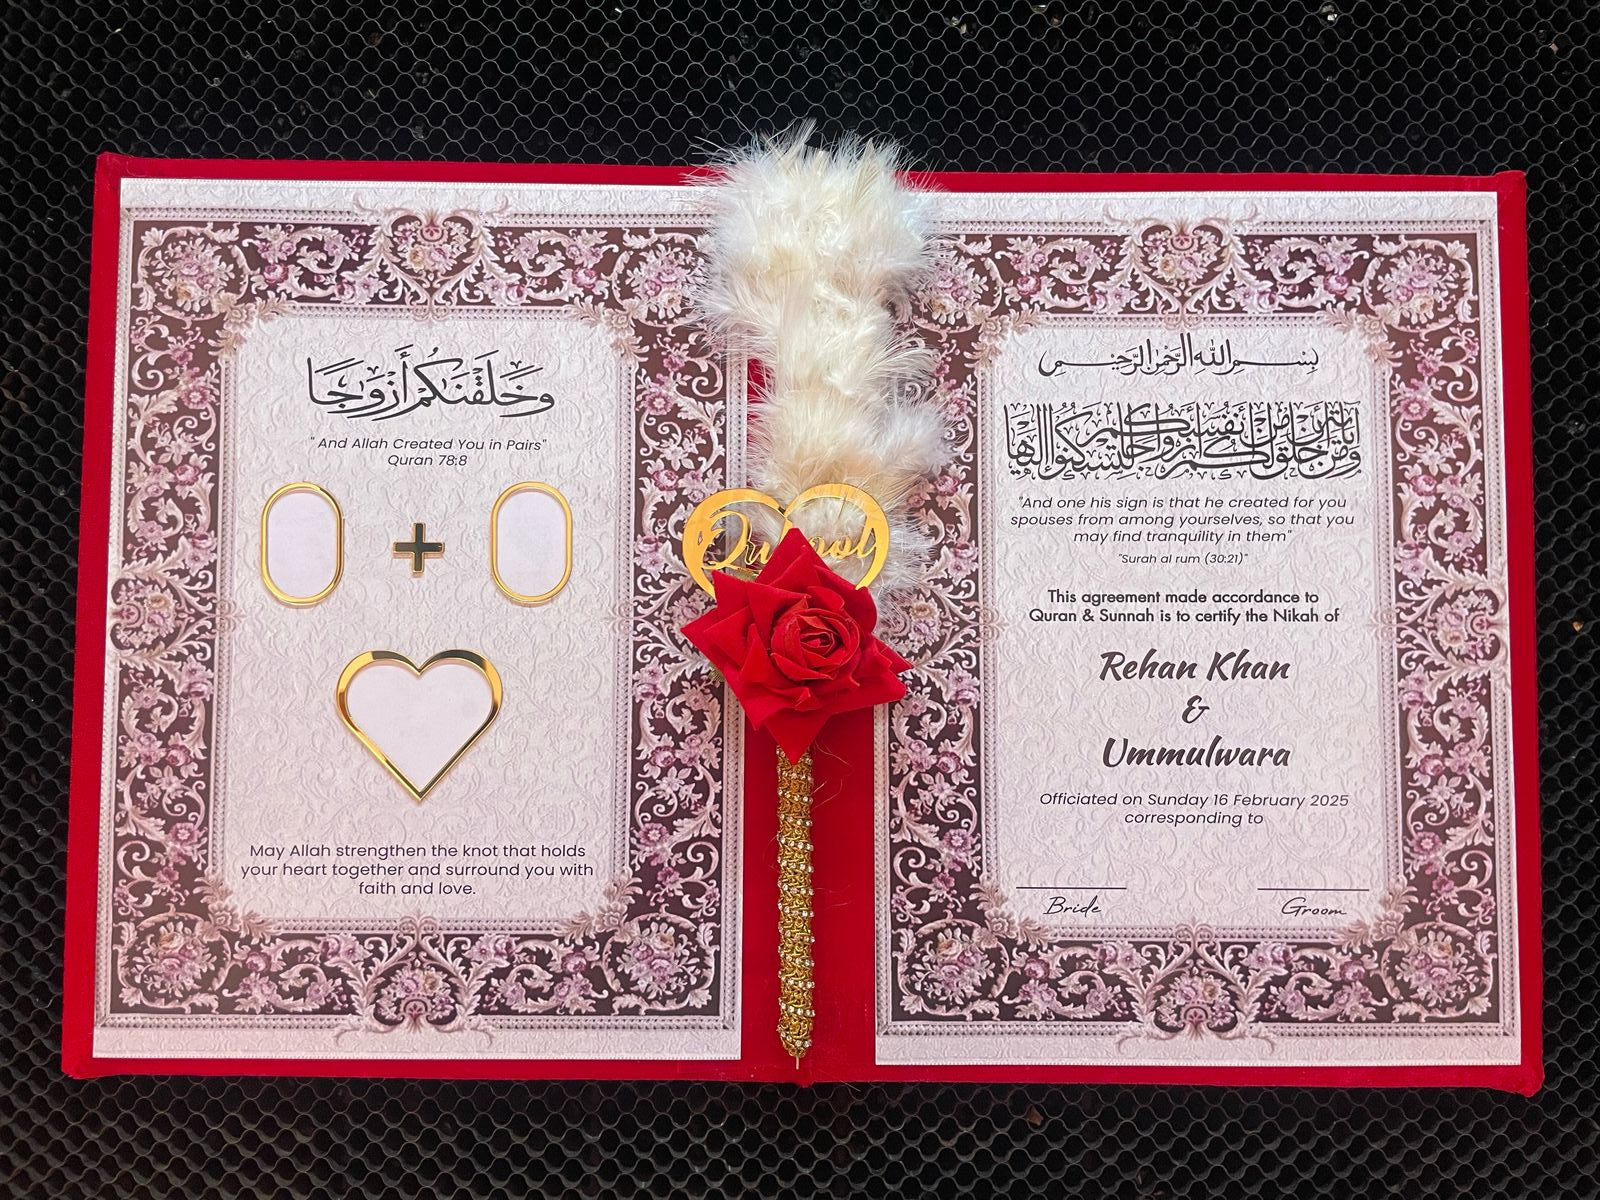 وَخَلَقْنَكُمْ أَزْوَجًا
" And Allah Created You in Pairs"
Quran 78:8
+
May Allah strengthen the knot that holds
your heart together and surround you with
faith and love.
بِسْمِ اللهِ الرَّحْمٰنِ الرَّحِيمِ
وَمِنْ آيَاتِهِ أَنْ خَلَقَ لَكُم مِّنْ أَنفُسِكُمْ أَزْوَاجًا لِّتَسْكُنُوا إِلَيْهَا
"And one his sign is that he created for you
spouses from among yourselves, so that you
may find tranquility in them"
"Surah al rum (30:21)"
This agreement made accordance to
Quran & Sunnah is to certify the Nikah of
Rehan Khan
&
Ummulwara
Officiated on Sunday 16 February 2025
corresponding to
Bride
Groom